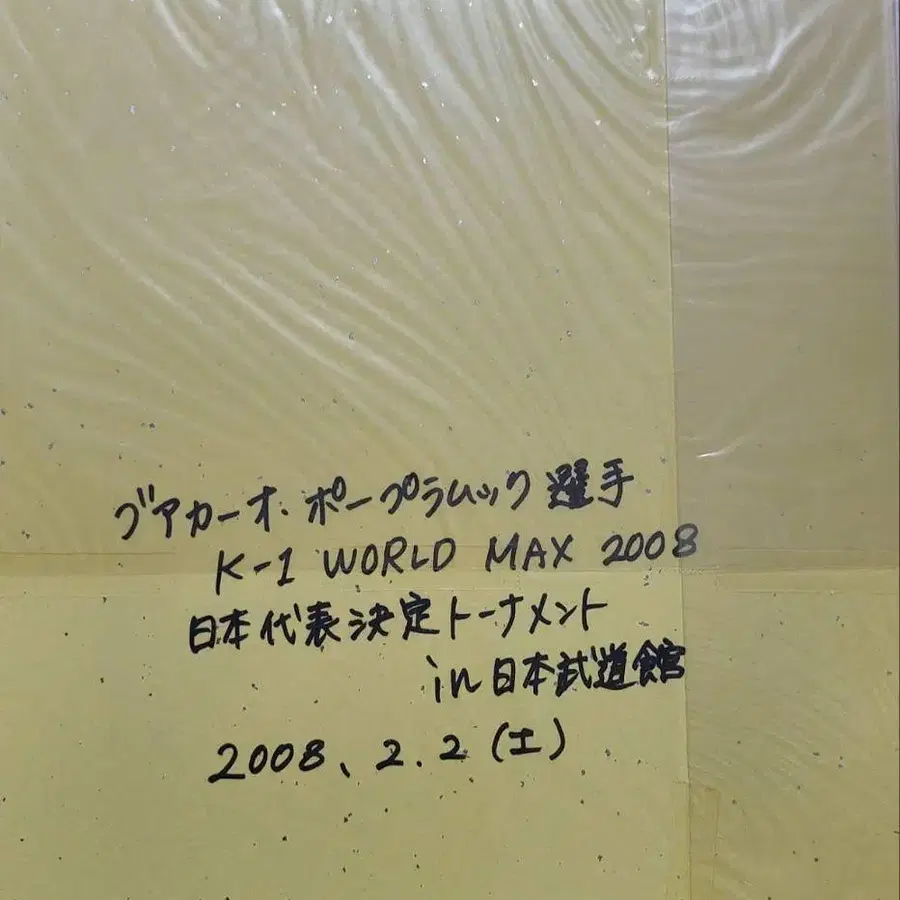 ブアカーオ・ポープラムック選手
K-1 WORLD MAX 2008
日本代表決定トーナメント
in 日本武道館
2008、2.2(土)